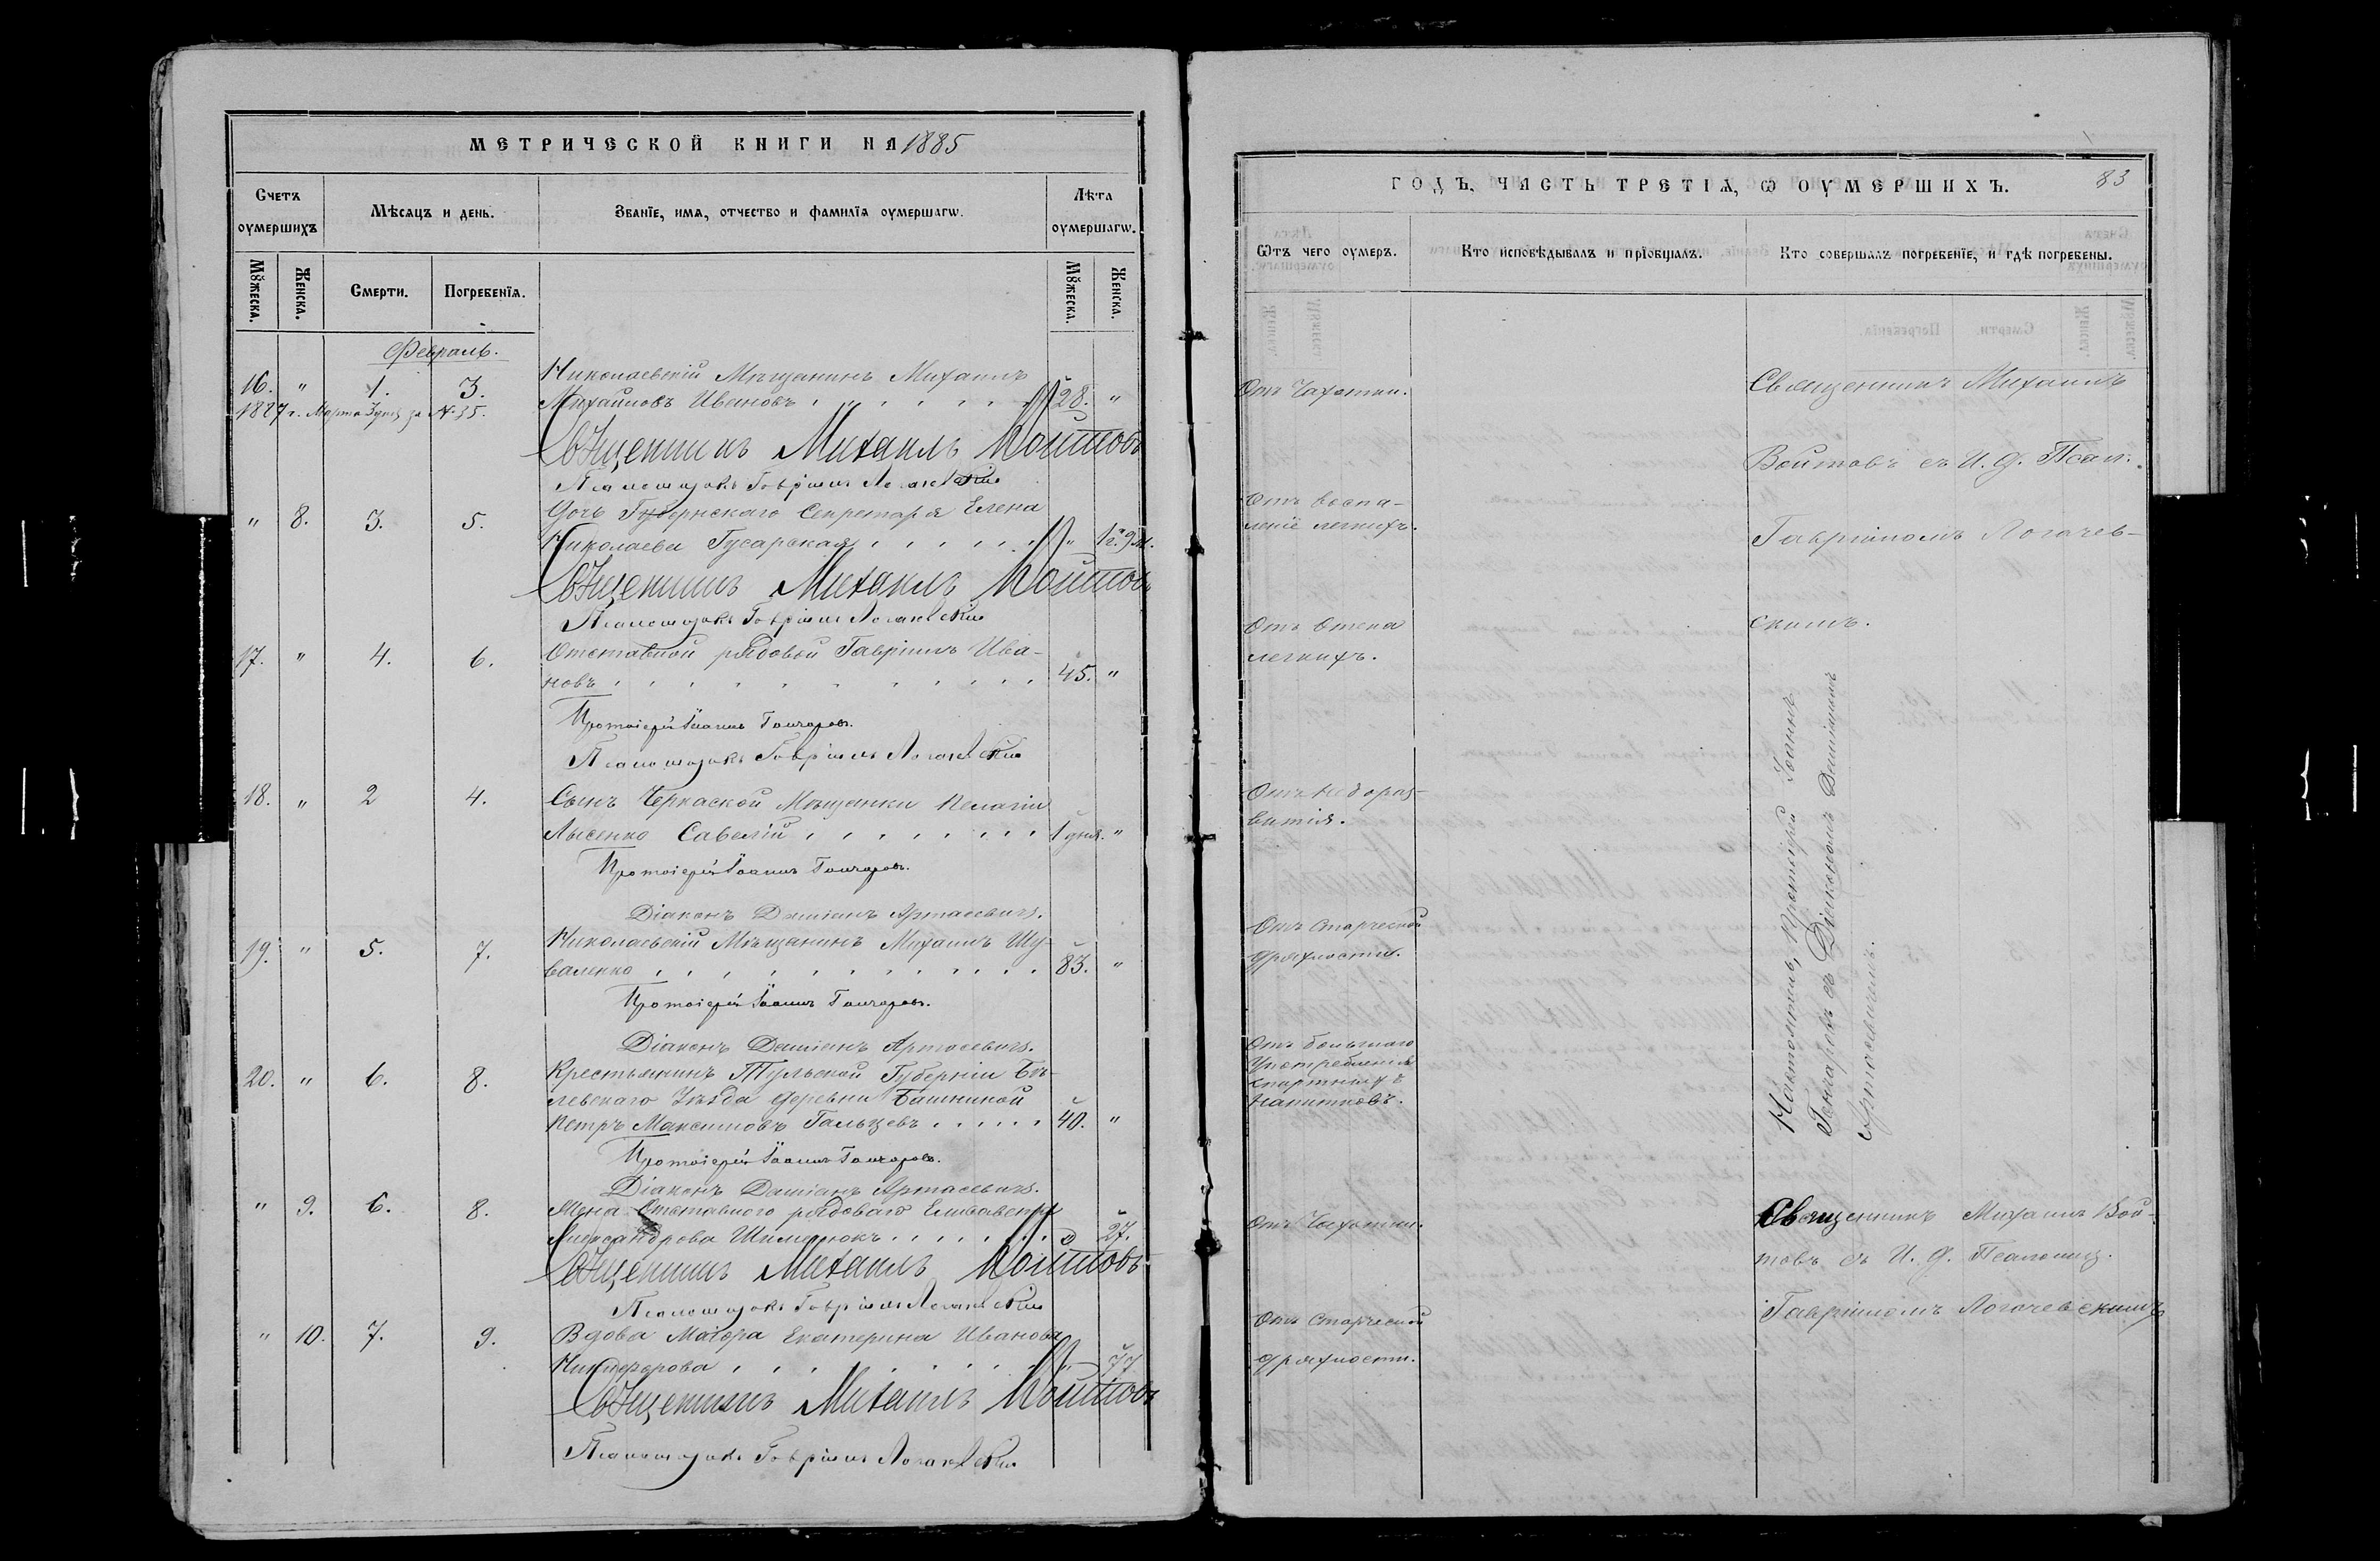 МЕТРИЧЕСКОЙ КНИГИ НА 1885
Счетъ оумершихъ
Мѣсяцъ и день.
Званїе, имя, отчество и фамилїя оумершагѡ.
Лѣта оумершагѡ.
Мꙋжеска.
Женска.
Смерти.
Погребенїя.
Мꙋжеска.
Женска.
Февраль.
16. " 1. 3. Николаевскій Мѣщанинъ Михаилъ
Михайловъ Ивановъ 28. "
1887 г. Марта за № 35.
Священникъ Михаилъ Войтовъ
Псаломщикъ Гавріилъ Логачевскій
" 8. 3. 5. Дочь Губернскаго Секретаря Елена
Николаева Гусарская " 1 г. 9 м.
Священникъ Михаилъ Войтовъ
Псаломщикъ Гавріилъ Логачевскій
17. " 4. 6. Отставной рядовой Гавріилъ Ива-
новъ 45. "
Протоіерей Іоаннъ Гончаровъ.
Псаломщикъ Гавріилъ Логачевскій
18. " 2 4. Сынъ Черкаской Мѣщанки Пелагіи
Лысенко Савелій 1 дня. "
Протоіерей Іоаннъ Гончаровъ.
Діаконъ Даміанъ Артасевичъ.
19. " 5. 7. Николаевскій Мѣщанинъ Михаилъ Шу-
валенко 83. "
Протоіерей Іоаннъ Гончаровъ.
Діаконъ Даміанъ Артасевичъ.
20. " 6. 8. Крестьянинъ Тульской Губерніи Бѣ-
левскаго Уѣзда деревни Башкиной
Петръ Максимовъ Гальцевъ 40. "
Протоіерей Іоаннъ Гончаровъ.
Діаконъ Даміанъ Артасевичъ.
" 9. 6. 8. Жена Отставного рядоваго Елисавета
Александрова Шиманюкъ 27.
Священникъ Михаилъ Войтовъ
Псаломщикъ Гавріилъ Логачевскій
" 10. 7. 9. Вдова Маіора Екатерина Иванова
Никифорова " 77
Священникъ Михаилъ Войтовъ
Псаломщикъ Гавріилъ Логачевскій
ГОДЪ, ЧАСТЬ ТРЕТІЯ, Ѡ ОУМЕРШИХЪ.
83
Ѿтъ чего оумеръ.
Кто исповѣдывалъ и прїобщалъ.
Кто совершалъ погребенїе, и гдѣ погребены.
Отъ Чахотки.
Священникъ Михаилъ
Войтовъ съ И. д. Псал.
Отъ воспа-
леніе легкихъ.
Гавріиломъ Логачев-
Отъ Отека
легкихъ.
скимъ.
Отъ недораз-
витія.
Отъ старческой
дряхлости.
Отъ большаго
Употребленія
спиртныхъ
напитковъ.
Настоятель, Протоіерей Іоаннъ
Гончаровъ съ Діакономъ Даміаномъ
Артасевичемъ.
Отъ Чахотки.
Священникъ Михаилъ Вой-
товъ съ И. д. Псаломщ.
Гавріиломъ Логачевскимъ
Отъ старческой
дряхлости.